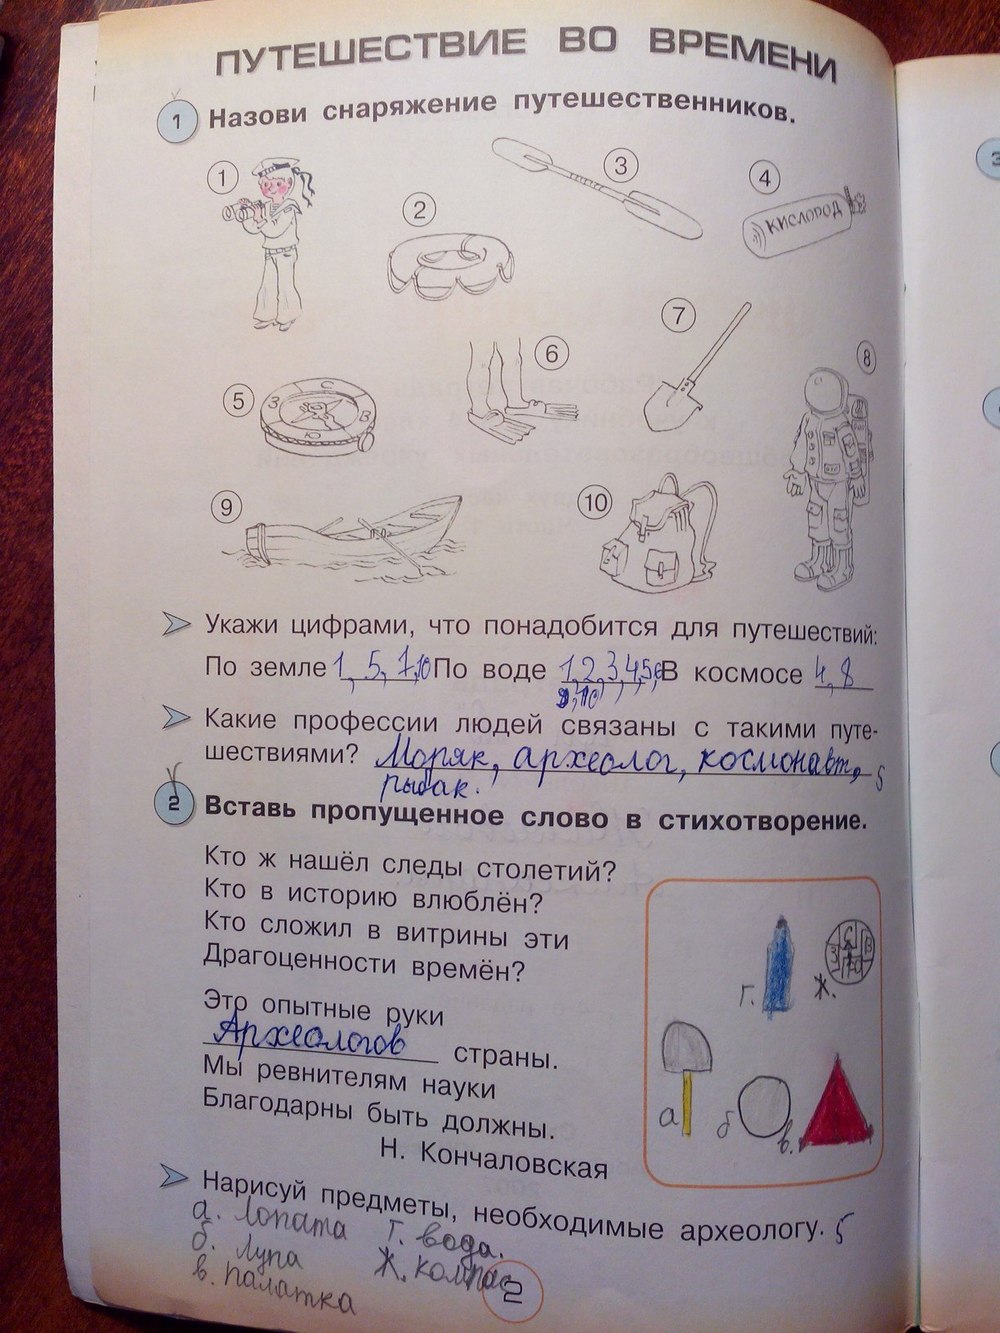 ПУТЕШЕСТВИЕ ВО ВРЕМЕНИ
1 Назови снаряжение путешественников.
1
2
3
4
КИСЛОРОД
5
С
З
В
Ю
6
7
8
9
10
Укажи цифрами, что понадобится для путешествий:
По земле 1, 5, 7,10 По воде 1,2,3,4,5,6 В космосе 4, 8
9,10
Какие профессии людей связаны с такими путе-
шествиями? Моряк, археолог, космонавт, 5
рыбак.
2 Вставь пропущенное слово в стихотворение.
Кто ж нашёл следы столетий?
Кто в историю влюблён?
Кто сложил в витрины эти
Драгоценности времён?
Это опытные руки
Археологов страны.
Мы ревнителям науки
Благодарны быть должны.
Н. Кончаловская
г.
ж.
С
З
В
Ю
а
б
в.
Нарисуй предметы, необходимые археологу. 5
а. лопата г. вода.
б. лупа ж. компас
в. палатка
2